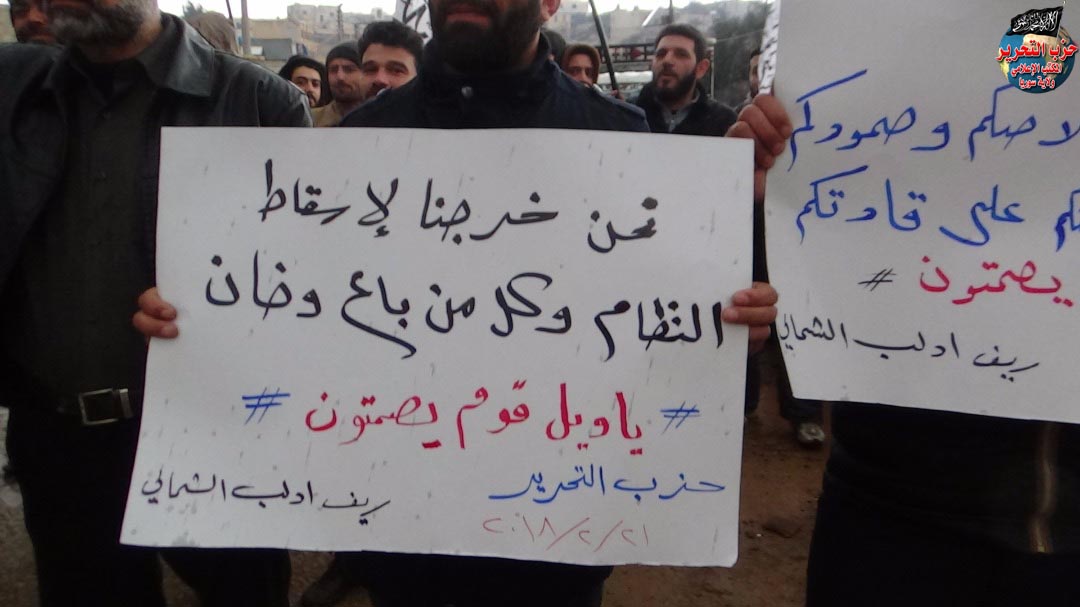 نحن خرجنا لإسقاط
النظام وكل من باع وخان
# ياويل قوم يصمتون #
حزب التحرير
ريف ادلب الشمالي
٢٠١٨/٢/٢١
وصمودكم
على قادتكم
يصمتون #
ريف ادلب الشمالي
حزب التحرير
المكتب الإعلامي
ولاية سوريا